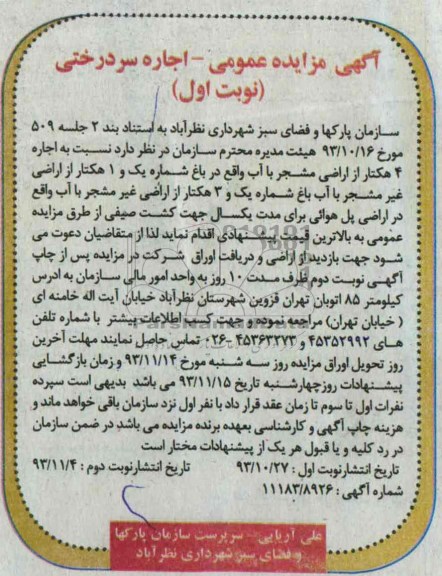 آگهی مزایده عمومی - اجاره سردرختی
(نوبت اول)
سازمان پارکها و فضای سبز شهرداری نظرآباد به استناد بند ۲ جلسه ۵۰۹
مورخ ۹۳/۱۰/۱۶ هیئت مدیره محترم سازمان در نظر دارد نسبت به اجاره
۴ هکتار از اراضی مشجر با آب واقع در باغ شماره یک و ۱ هکتار از اراضی
غیر مشجر با آب باغ شماره یک و ۳ هکتار از اراضی غیر مشجر با آب واقع
در اراضی پل هوائی برای مدت یکسال جهت کشت صیفی از طرق مزایده
عمومی به بالاترین قیمت پیشنهادی اقدام نماید لذا از متقاضیان دعوت می
شود جهت بازدید از اراضی و دریافت اوراق شرکت در مزایده پس از چاپ
آگهی نوبت دوم ظرف مدت ۱۰ روز به واحد امور مالی سازمان به ادرس
کیلومتر ۸۵ اتوبان تهران قزوین شهرستان نظرآباد خیابان آیت اله خامنه ای
( خیابان تهران) مراجعه نموده و جهت کسب اطلاعات بیشتر با شماره تلفن
های ۴۵۳۵۲۹۹۲ و ۴۵۳۶۳۲۷۳ -۰۲۶ تماس حاصل نمایند مهلت آخرین
روز تحویل اوراق مزایده روز سه شنبه مورخ ۹۳/۱۱/۱۴ و زمان بازگشایی
پیشنهادات روزچهارشنبه تاریخ ۹۳/۱۱/۱۵ می باشد بدیهی است سپرده
نفرات اول تا سوم تا زمان عقد قرار داد با نفر اول نزد سازمان باقی خواهد ماند و
هزینه چاپ آگهی و کارشناسی بعهده برنده مزایده می باشد در ضمن سازمان
در رد کلیه و یا قبول هر یک از پیشنهادات مختار است
تاریخ انتشارنوبت اول : ۹۳/۱۰/۲۷ تاریخ انتشارنوبت دوم : ۹۳/۱۱/۴
شماره آگهی : ۱۱۱۸۳/۸۹۲۶
علی آریایی - سرپرست سازمان پارکها
و فضای سبز شهرداری نظرآباد